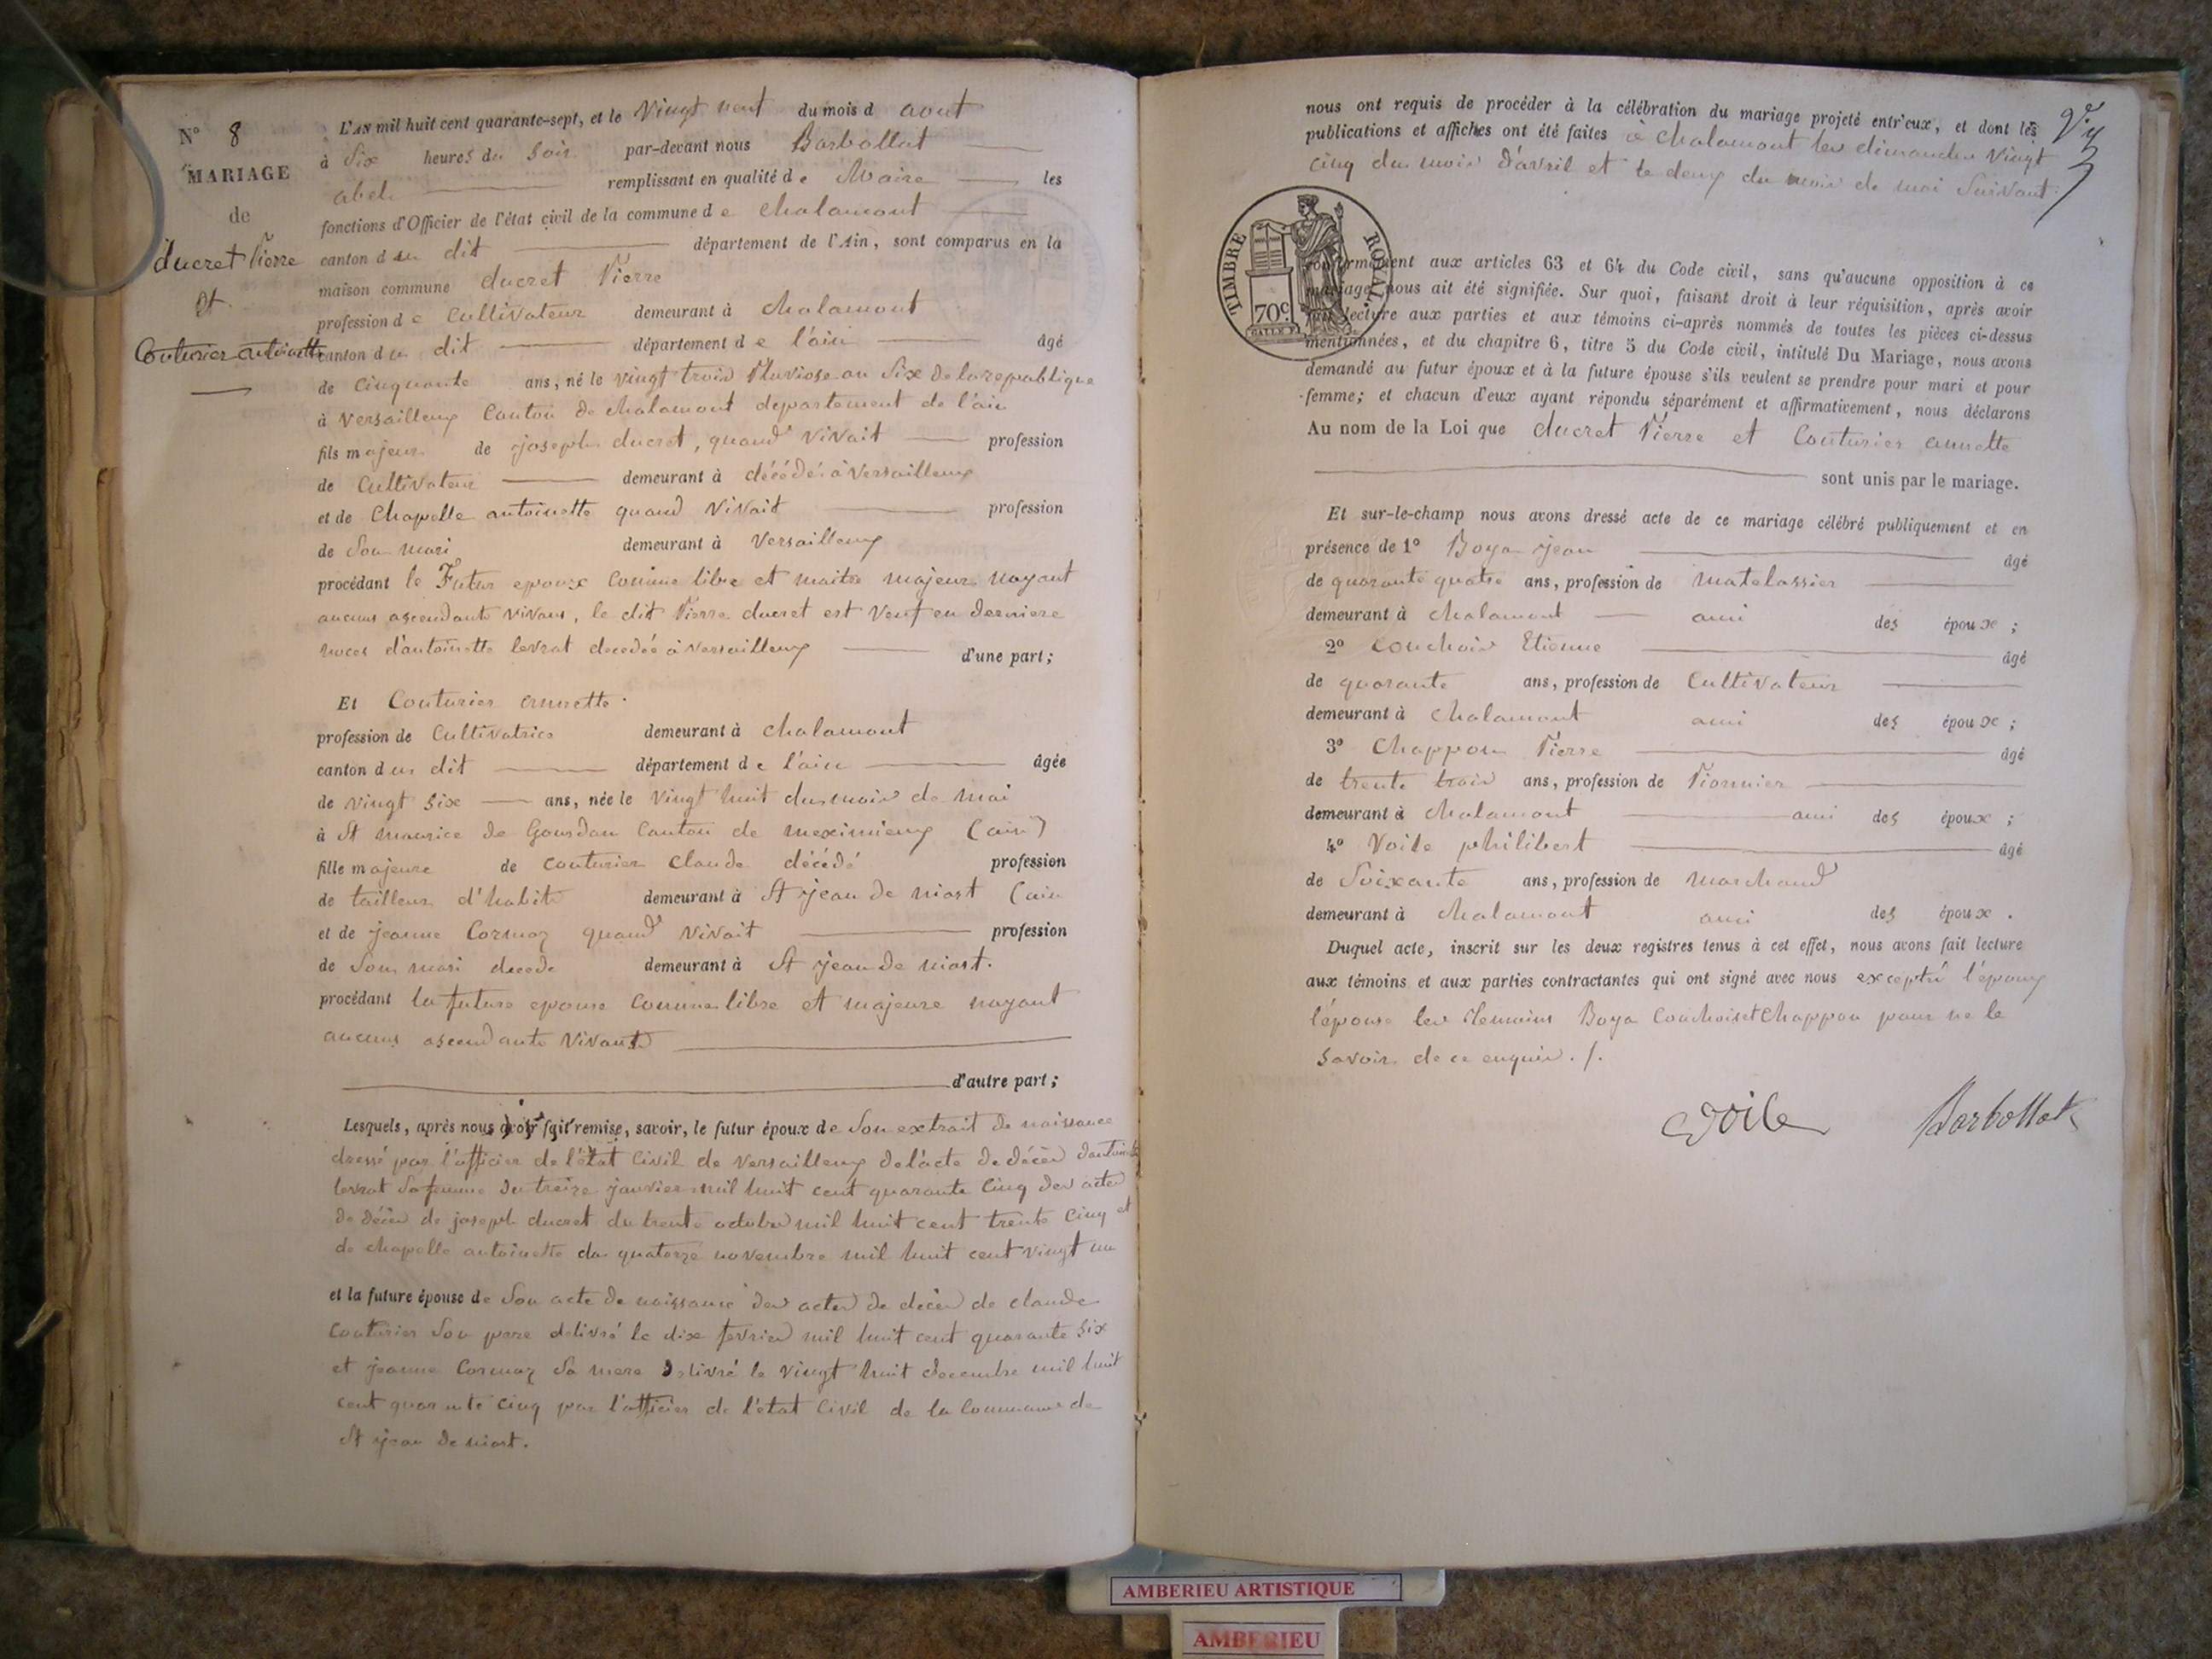 N° 8
MARIAGE
de
ducret Pierre
et
Couturier antoinette
L'AN mil huit cent quarante-sept, et le Vingt neuf du mois d aout
à Six heures du Soir par-devant nous Barbollat
abel remplissant en qualité de Maire les
fonctions d'Officier de l'état civil de la commune de chalamont
canton du dit département de l'Ain, sont comparus en la
maison commune ducret Pierre
profession de Cultivateur demeurant à chalamont
canton du dit département de l'ain âgé
de Cinquante ans, né le vingt trois Pluviose an Six de la republique
à Versailleux Canton de chalamont departement de l'ain
fils majeur de joseph ducret, quand vivait profession
de Cultivateur demeurant à décédé à Versailleux
et de Chapelle antoinette quand vivait profession
de Son mari demeurant à Versailleux
procédant le Futur epoux Comme libre et maitre majeur nayant
aucuns ascendants vivans, le dit Pierre ducret est Veuf en derniere
noces d'antoinette levrat decedée à Versailleux d'une part;
Et Couturier annette
profession de Cultivatrice demeurant à chalamont
canton du dit département de l'ain âgée
de vingt Six ans, née le Vingt huit du mois de mai
à St maurice de Gourdan Canton de meximieux (ain)
fille majeure de couturier Claude décédé profession
de tailleur d'habits demeurant à St jean de niost (ain
et de jeanne Cormoz quand vivait profession
de Son mari decede demeurant à St jean de niost.
procédant la future epouse Comme libre et majeure nayant
aucuns ascendants Vivants
d'autre part;
Lesquels, après nous avoir fait remise, savoir, le futur époux de Son extrait de naissance
dressé par l'officier de l'état Civil de Versailleux de l'acte de décès dantoinette
levrat Sa femme du treize janvier mil huit cent quarante Cinq des actes
de décès de joseph ducret du trente octobre mil huit cent trente Cinq et
de chapelle antoinette du quatorze novembre mil huit cent vingt un
et la future épouse de Son acte de naissance des actes de décès de claude
Couturier Son pere delivré le dix fevrier mil huit cent quarante Six
et jeanne Cormoz Sa mere delivré le Vingt huit decembre mil huit
cent quarante Cinq par l'officier de l'état Civil de la Commune de
St jean de niost.
nous ont requis de procéder à la célébration du mariage projeté entr'eux, et dont les
publications et affiches ont été faites à chalamont les dimanches Vingt
cinq du mois d'avril et le deux du mois de mai Suivant
TIMBRE ROYAL
70c
conformément aux articles 63 et 64 du Code civil, sans qu'aucune opposition à ce
mariage nous ait été signifiée. Sur quoi, faisant droit à leur réquisition, après avoir
lecture aux parties et aux témoins ci-après nommés de toutes les pièces ci-dessus
mentionnées, et du chapitre 6, titre 5 du Code civil, intitulé Du Mariage, nous avons
demandé au futur époux et à la future épouse s'ils veulent se prendre pour mari et pour
femme; et chacun d'eux ayant répondu séparément et affirmativement, nous déclarons
Au nom de la Loi que ducret Pierre et Couturier annette
sont unis par le mariage.
Et sur-le-champ nous avons dressé acte de ce mariage célébré publiquement et en
présence de 1° Boya jean âgé
de quarante quatre ans, profession de matelassier
demeurant à chalamont ami des époux ;
2° Couchois Etienne âgé
de quarante ans, profession de Cultivateur
demeurant à chalamont ami des époux ;
3° Chappon Pierre âgé
de trente trois ans, profession de Pionnier
demeurant à chalamont ami des époux ;
4° Voile philibert âgé
de Soixante ans, profession de marchand
demeurant à chalamont ami des époux .
Duquel acte, inscrit sur les deux registres tenus à cet effet, nous avons fait lecture
aux témoins et aux parties contractantes qui ont signé avec nous excepté l'époux
l'épouse les témoins Boya Couchois et Chappon pour ne le
Savoir de ce enquis. /.
Voile Barbollat
AMBERIEU ARTISTIQUE
AMBERIEU